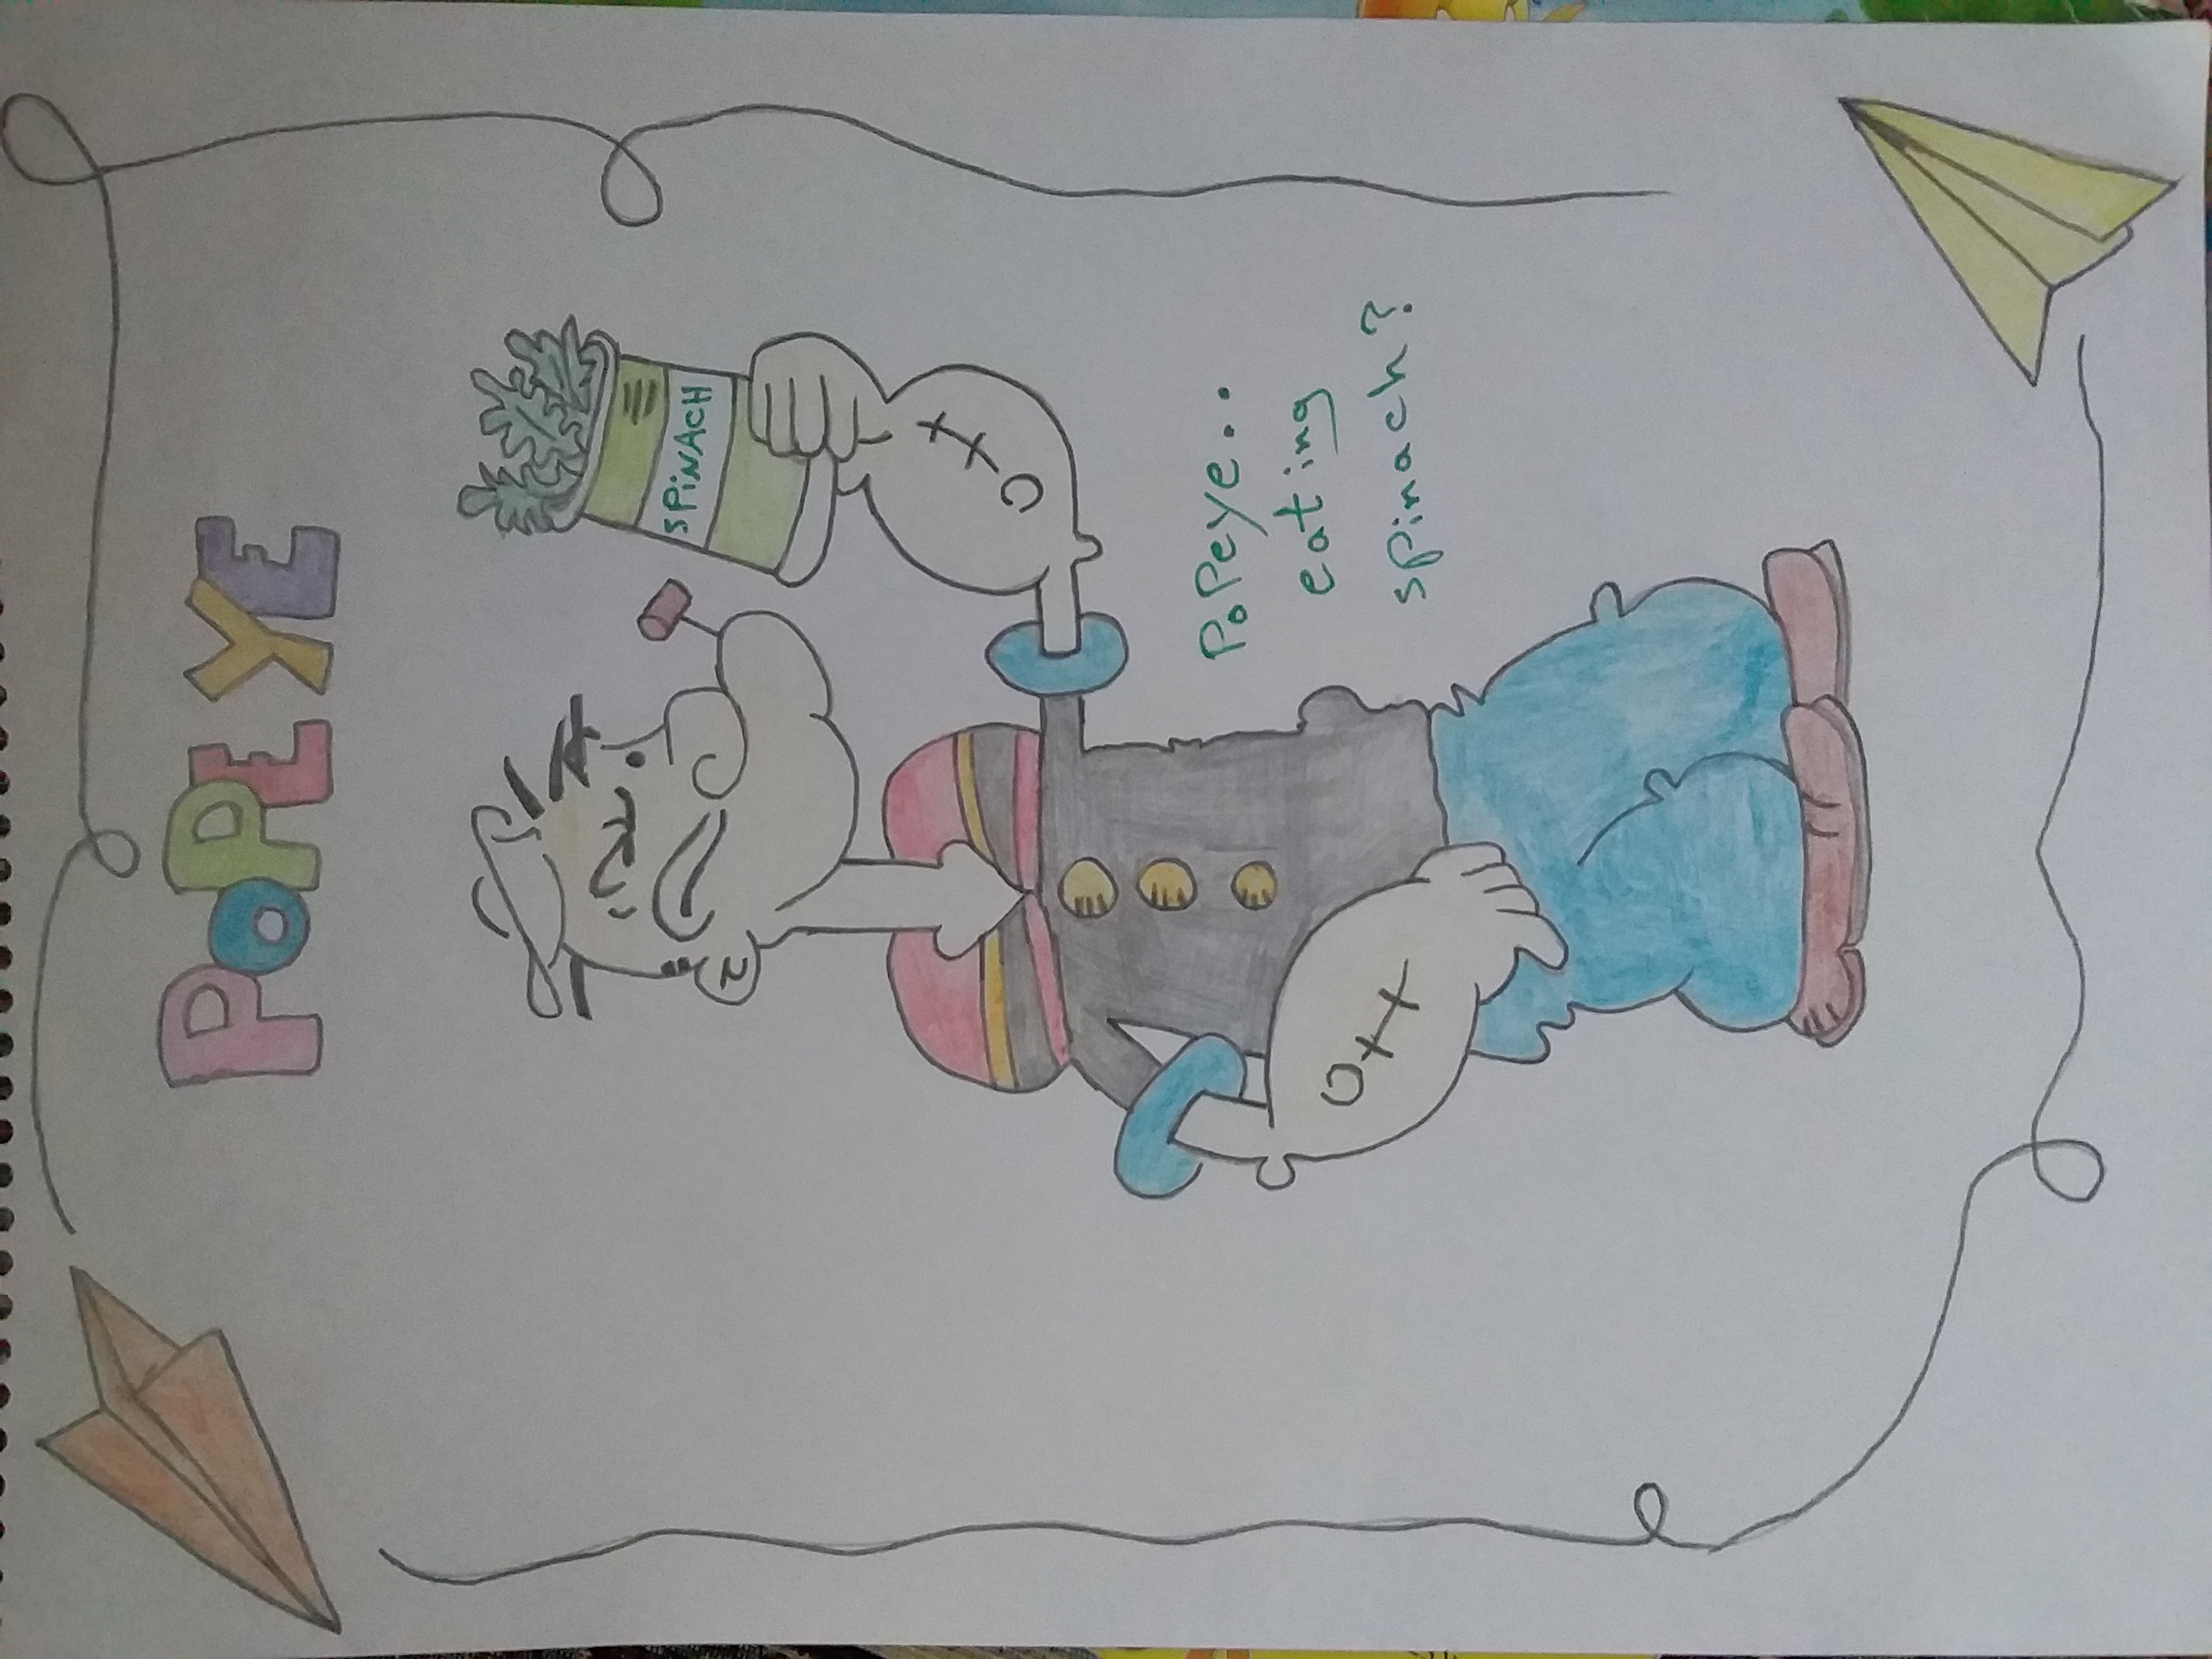 POPEYE
SPiNACH
PoPeye..
eating
spinach?